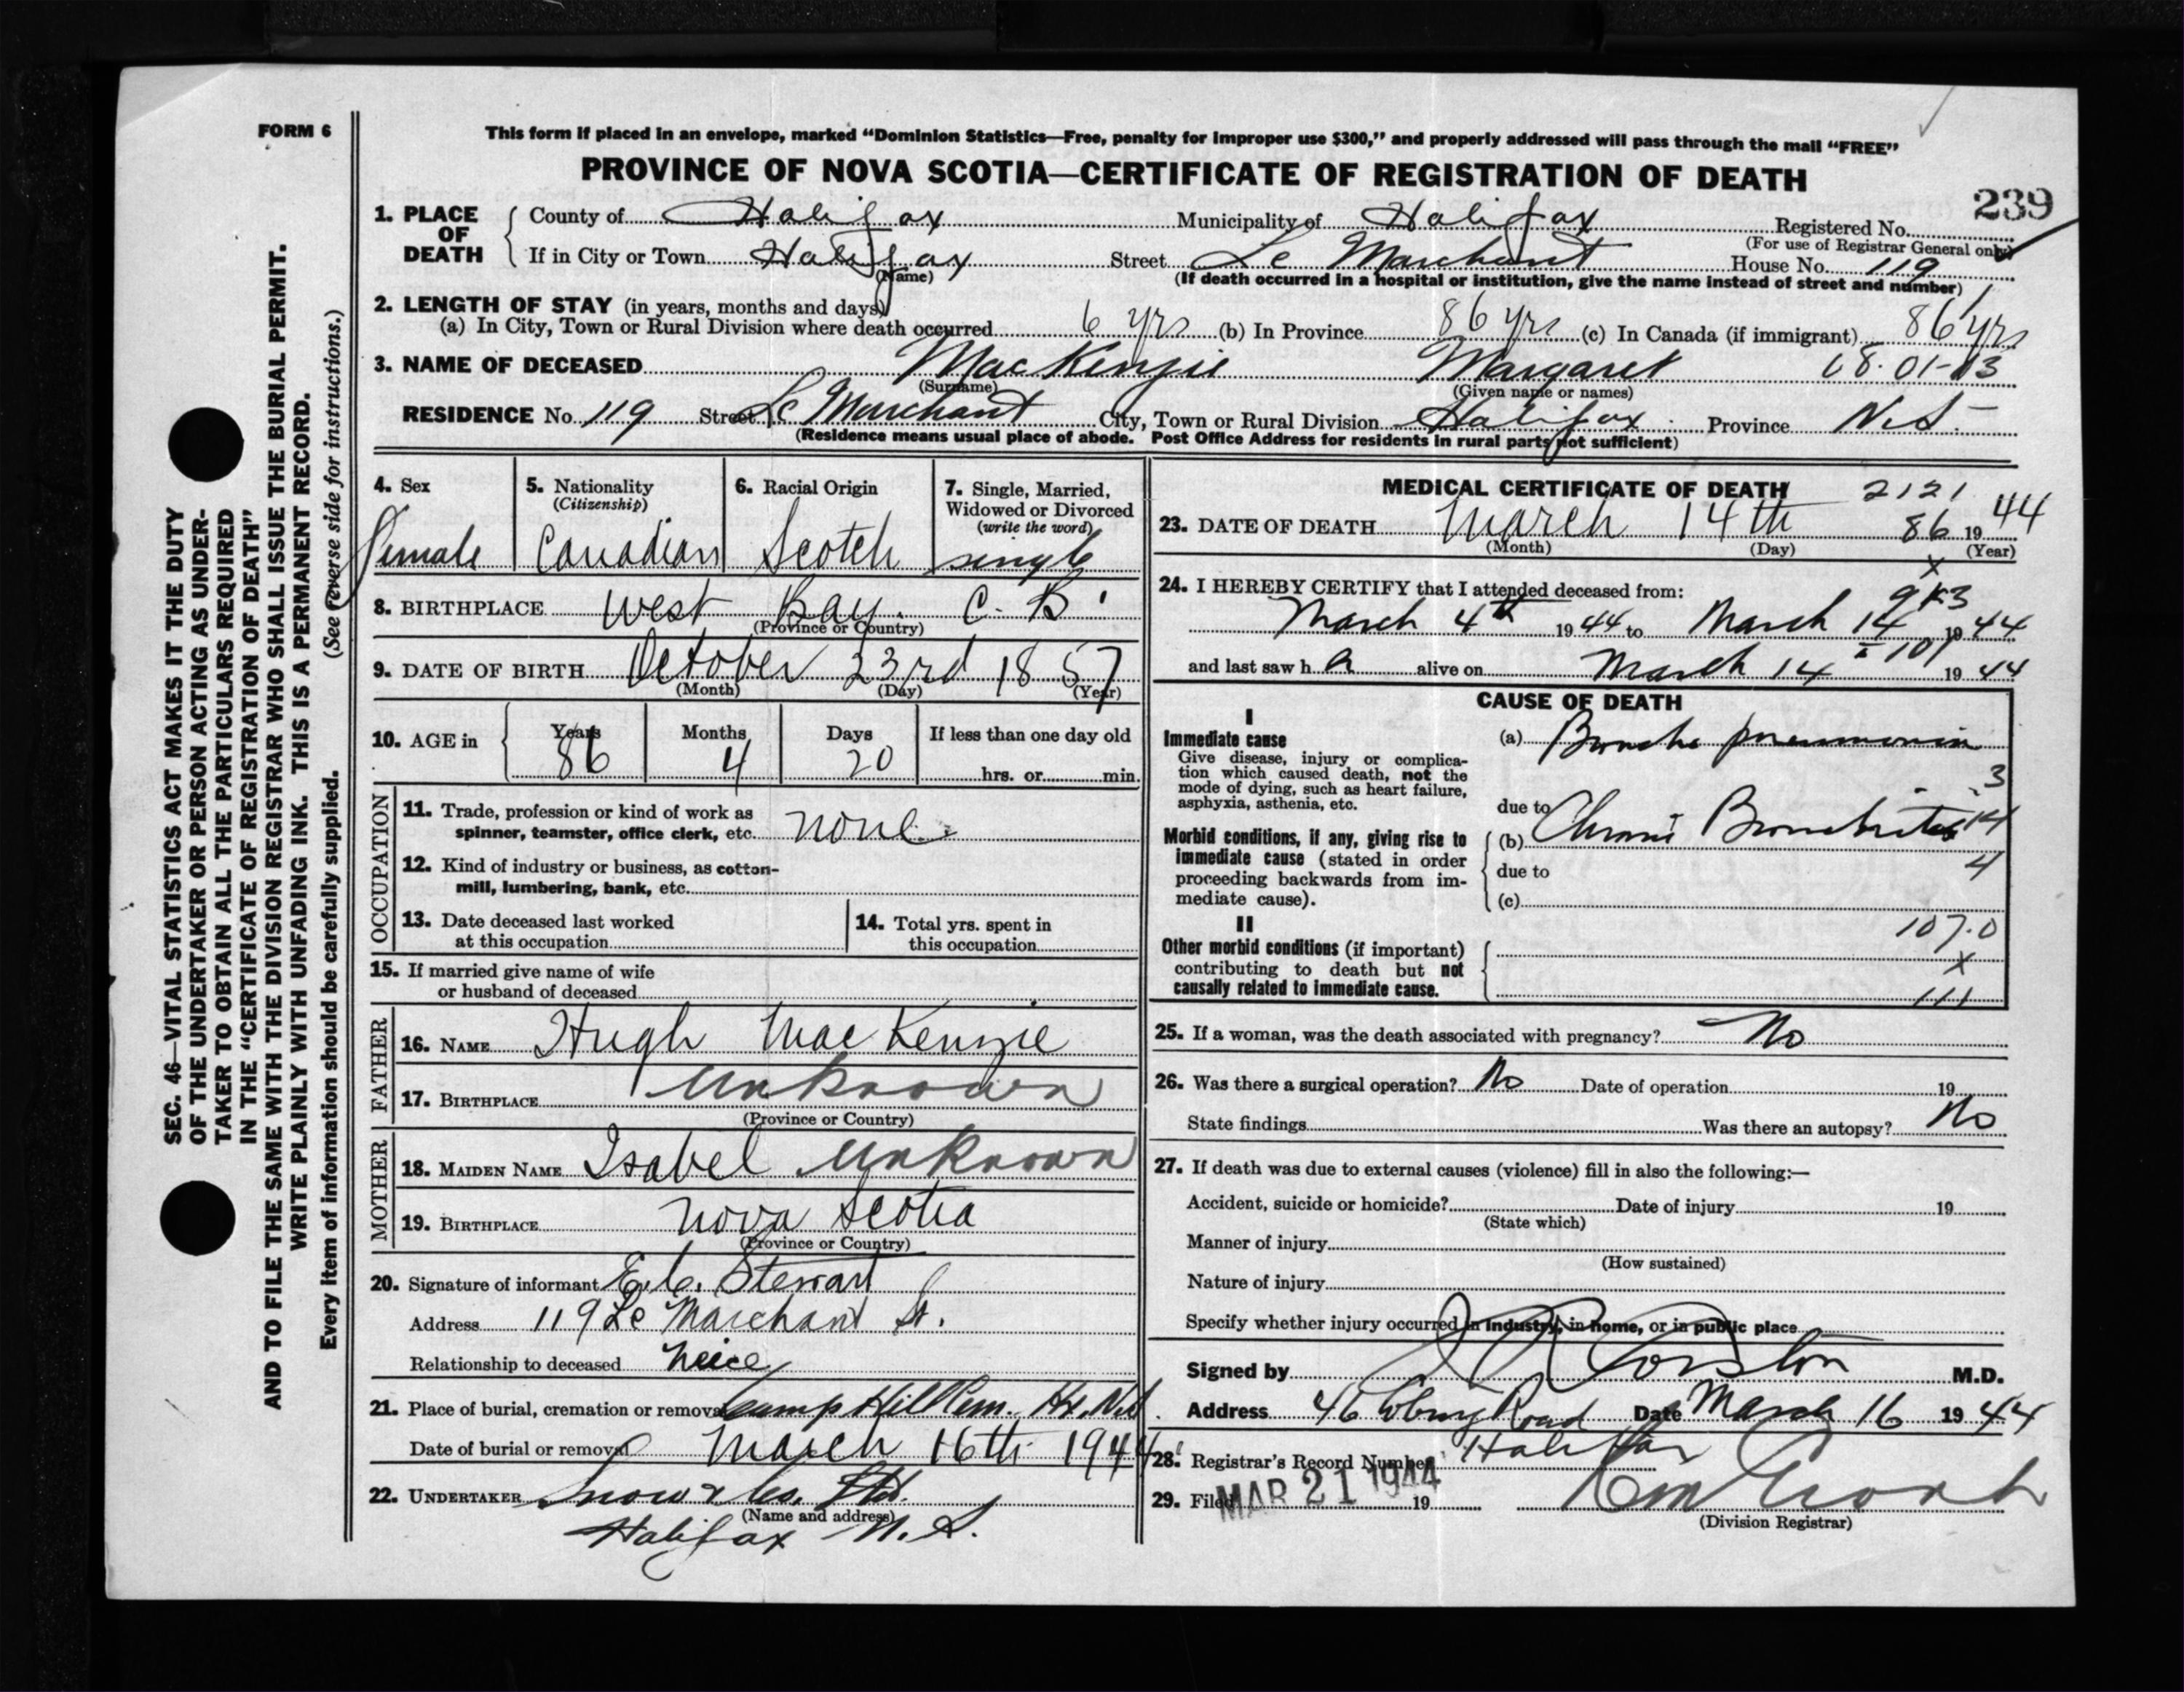 FORM 6
This form if placed in an envelope, marked “Dominion Statistics—Free, penalty for improper use $300,” and properly addressed will pass through the mail “FREE”
PROVINCE OF NOVA SCOTIA—CERTIFICATE OF REGISTRATION OF DEATH
239
1. PLACE OF DEATH
County of Halifax Municipality of Halifax Registered No.
(For use of Registrar General only)
If in City or Town Halifax Street Le Marchant House No. 119
(Name) (If death occurred in a hospital or institution, give the name instead of street and number)
2. LENGTH OF STAY (in years, months and days)
(a) In City, Town or Rural Division where death occurred 6 yrs (b) In Province 86 yrs (c) In Canada (if immigrant) 86 yrs
3. NAME OF DECEASED MacKenzie Margaret
(Surname) (Given name or names)
RESIDENCE No. 119 Street Le Marchant City, Town or Rural Division Halifax Province N.S.
(Residence means usual place of abode. Post Office Address for residents in rural parts not sufficient)
4. Sex
Female
5. Nationality
(Citizenship)
Canadian
6. Racial Origin
Scotch
7. Single, Married,
Widowed or Divorced
(write the word)
single
8. BIRTHPLACE West Bay. C. B.
(Province or Country)
9. DATE OF BIRTH October 23rd 1857
(Month) (Day) (Year)
10. AGE in
Years Months Days If less than one day old
86 4 20 hrs. or min.
OCCUPATION
11. Trade, profession or kind of work as
spinner, teamster, office clerk, etc. none.
12. Kind of industry or business, as cotton-
mill, lumbering, bank, etc.
13. Date deceased last worked
at this occupation
14. Total yrs. spent in
this occupation
15. If married give name of wife
or husband of deceased
FATHER
16. NAME Hugh MacKenzie
17. BIRTHPLACE Unknown
(Province or Country)
MOTHER
18. MAIDEN NAME Isabel Unknown
19. BIRTHPLACE Nova Scotia
(Province or Country)
20. Signature of informant E.C. Stewart
Address 119 Le Marchant St.
Relationship to deceased neice
21. Place of burial, cremation or removal Camp Hill Cem. Hx. N.S.
Date of burial or removal March 16th 1944
22. UNDERTAKER Snow & Co. Ltd.
(Name and address)
Halifax N. S.
MEDICAL CERTIFICATE OF DEATH 2121
23. DATE OF DEATH March 14th 86 19 44
(Month) (Day) (Year)
x
24. I HEREBY CERTIFY that I attended deceased from:
March 4th 19 44 to March 14 19 44
and last saw h a alive on March 14 19 44
CAUSE OF DEATH
I
Immediate cause
Give disease, injury or complica-
tion which caused death, not the
mode of dying, such as heart failure,
asphyxia, asthenia, etc.
(a) Broncho pneumonia
3
due to
Morbid conditions, if any, giving rise to
immediate cause (stated in order
proceeding backwards from im-
mediate cause).
(b) Chronic Bronchitis 14
due to 4
(c)
107.0
II
Other morbid conditions (if important)
contributing to death but not
causally related to immediate cause.
x
111
25. If a woman, was the death associated with pregnancy? No
26. Was there a surgical operation? No Date of operation 19
State findings Was there an autopsy? No
27. If death was due to external causes (violence) fill in also the following:—
Accident, suicide or homicide? Date of injury 19
(State which)
Manner of injury
(How sustained)
Nature of injury
Specify whether injury occurred in industry, in home, or in public place
Signed by Corston M.D.
Address 46 Coburg Road Date March 16 19 44
Halifax
28. Registrar's Record Number
29. Filed MAR 21 1944 19
(Division Registrar)
SEC. 46—VITAL STATISTICS ACT MAKES IT THE DUTY
OF THE UNDERTAKER OR PERSON ACTING AS UNDER-
TAKER TO OBTAIN ALL THE PARTICULARS REQUIRED
IN THE “CERTIFICATE OF REGISTRATION OF DEATH”
AND TO FILE THE SAME WITH THE DIVISION REGISTRAR WHO SHALL ISSUE THE BURIAL PERMIT.
WRITE PLAINLY WITH UNFADING INK. THIS IS A PERMANENT RECORD.
Every item of information should be carefully supplied. (See reverse side for instructions.)